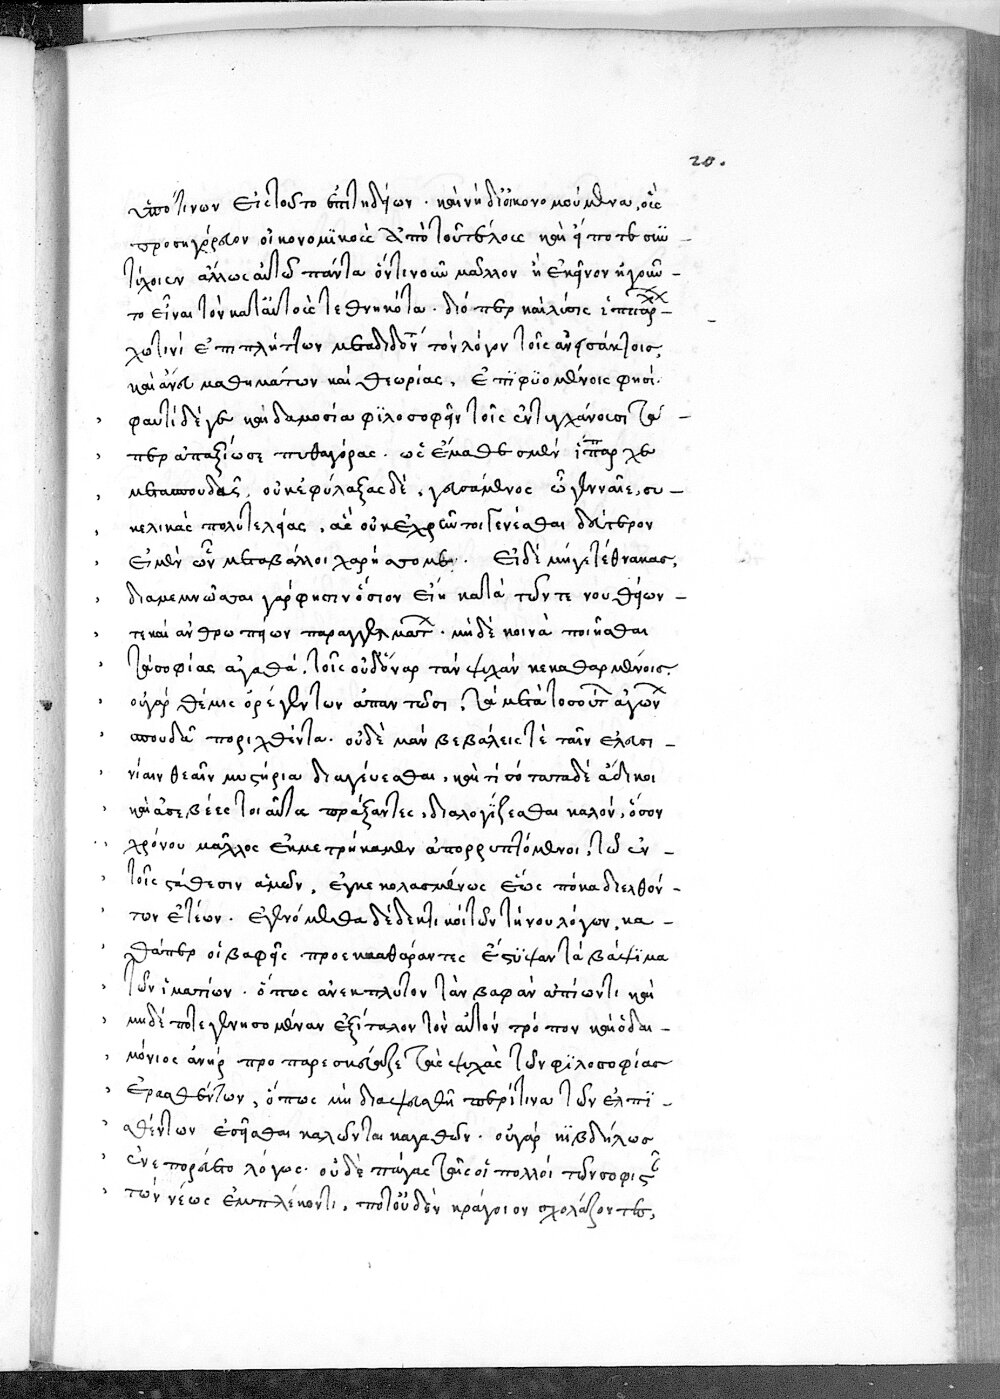 20.
ὑπό τινων εἰς τοῦτο ἐπιτηδείων. καὶ νὴ δί᾽ οἰκονομούμενα, οὓς
προσηγόρευον οἰκονομϊκοὺς ἀπὸ τοῦ τέλους καὶ εἴ ποτε συν –
τύχοιεν ἄλλως αὐτῶ πάντα ὁντινοῦν μᾶλλον ἢ ἐκεῖνον ἡγοῦν –
το εἶναι τὸν κατ᾽ αὐτοὺς τεθνηκότα. διόπερ καὶ λύσις ἱππάρ –
χω τινί ἐπιπλήττων μεταδιδοῦντι τὸν λόγων τοῖς ἀνεισάκτοις,
καὶ ἄνευ μαθημάτων καὶ θεωρίας, ἐπϊφϋομένοις φησί.
φαντὶ δέ γε καὶ δαμοσία φϊλοσοφῆν τοῖς ἐντυγχάνουσι τά –
περ ἀπαξίωσε πυθαγόρας. ὡς ἔμαθες μὲν ἵππαρχε
μετὰ σπουδᾶς, οὐκ ἐφύλαξας δέ, γευσάμενος ὦ γενναῖε, σι –
κελικᾶς πολυτελείας, ἃς οὐκ ἐχρῶν τοι γενέσθαι δεύτερον
εἰ μὲν ὦν μεταβάλλοι χαρήσομαι. εἰ δὲ μή γε τέθνακας,
διαμεμνᾶσθαι γάρ φησιν ὅσιον εἴη κατὰ τῶν τήνου θείων –
τε καὶ ἀνθρωπείων παραγγελμάτων. μηδὲ κοινὰ ποιεῖσθαι
τὰ σοφίας ἀγαθά, τοῖς οὐδ᾽ ὄναρ τὰν ψυχὰν κεκαθαρμένοις.
οὐ γάρ θέμις ὀρέγεν τῶν ἀπαντῶσι, τὰ μετὰ τοσούτων ἀγώνων
σπουδᾶ ποριχθέντα. οὐδὲ μὰν βεβάλοις τὲ ταῖν ἐλευσι –
νίαιν θεαῖν μυστήρια διαγέεσθαι, κατ᾽ ἰσότατα δὲ ἄδικοι
καὶ ἀσεβέες τοὶ αὖτα πράξαντες, διαλογίζεσθαι καλόν, ὅσον
χρόνου μᾶκος ἐκμετρήκαμεν ἀπορρυπτόμενοι, τῶ ἐν –
τοῖς στάθεσιν ἁμῶν, ἐγκεκολασμένως ἕως πόκα διελθόν –
των ἐτέων. ἐγενόμεθα δέ δεκτικοὶ τῶν τήνου λόγων. κα –
θάπερ οἱ βαφεῖς προεκκαθάραντες ἔστϋψαν τὰ βάψϊμα
τῶν ἱματίων. ὅπως ἀνέκπλυτον τὰν βαφὰν ἀπίωντι καὶ
μηδέποτε γενησομέναν ἐξίταλον τὸν αὐτόν τρόπον καὶ ὁ δαι –
μόνιος ἀνήρ προπαρεσκεύαξε τὰς ψυχὰς τῶν φϊλοσοφίας
ἐρασθέντων, ὅπως μὴ διαψευσθῆ περί τινα τῶν ἐλπϊ –
σθέντων ἐσεῖσθαι καλῶν τε κἀγαθῶν. οὐ γάρ κϊβδήλους
ἐνεπορεύετο λόγως. οὐδὲ πάγας ταῖς οἱ πολλοὶ τῶν σοφιστῶν
τὼν νέως ἐμπλέκοντι, ποτ᾽ οὐδὲν κράγυον σχολάζοντες,